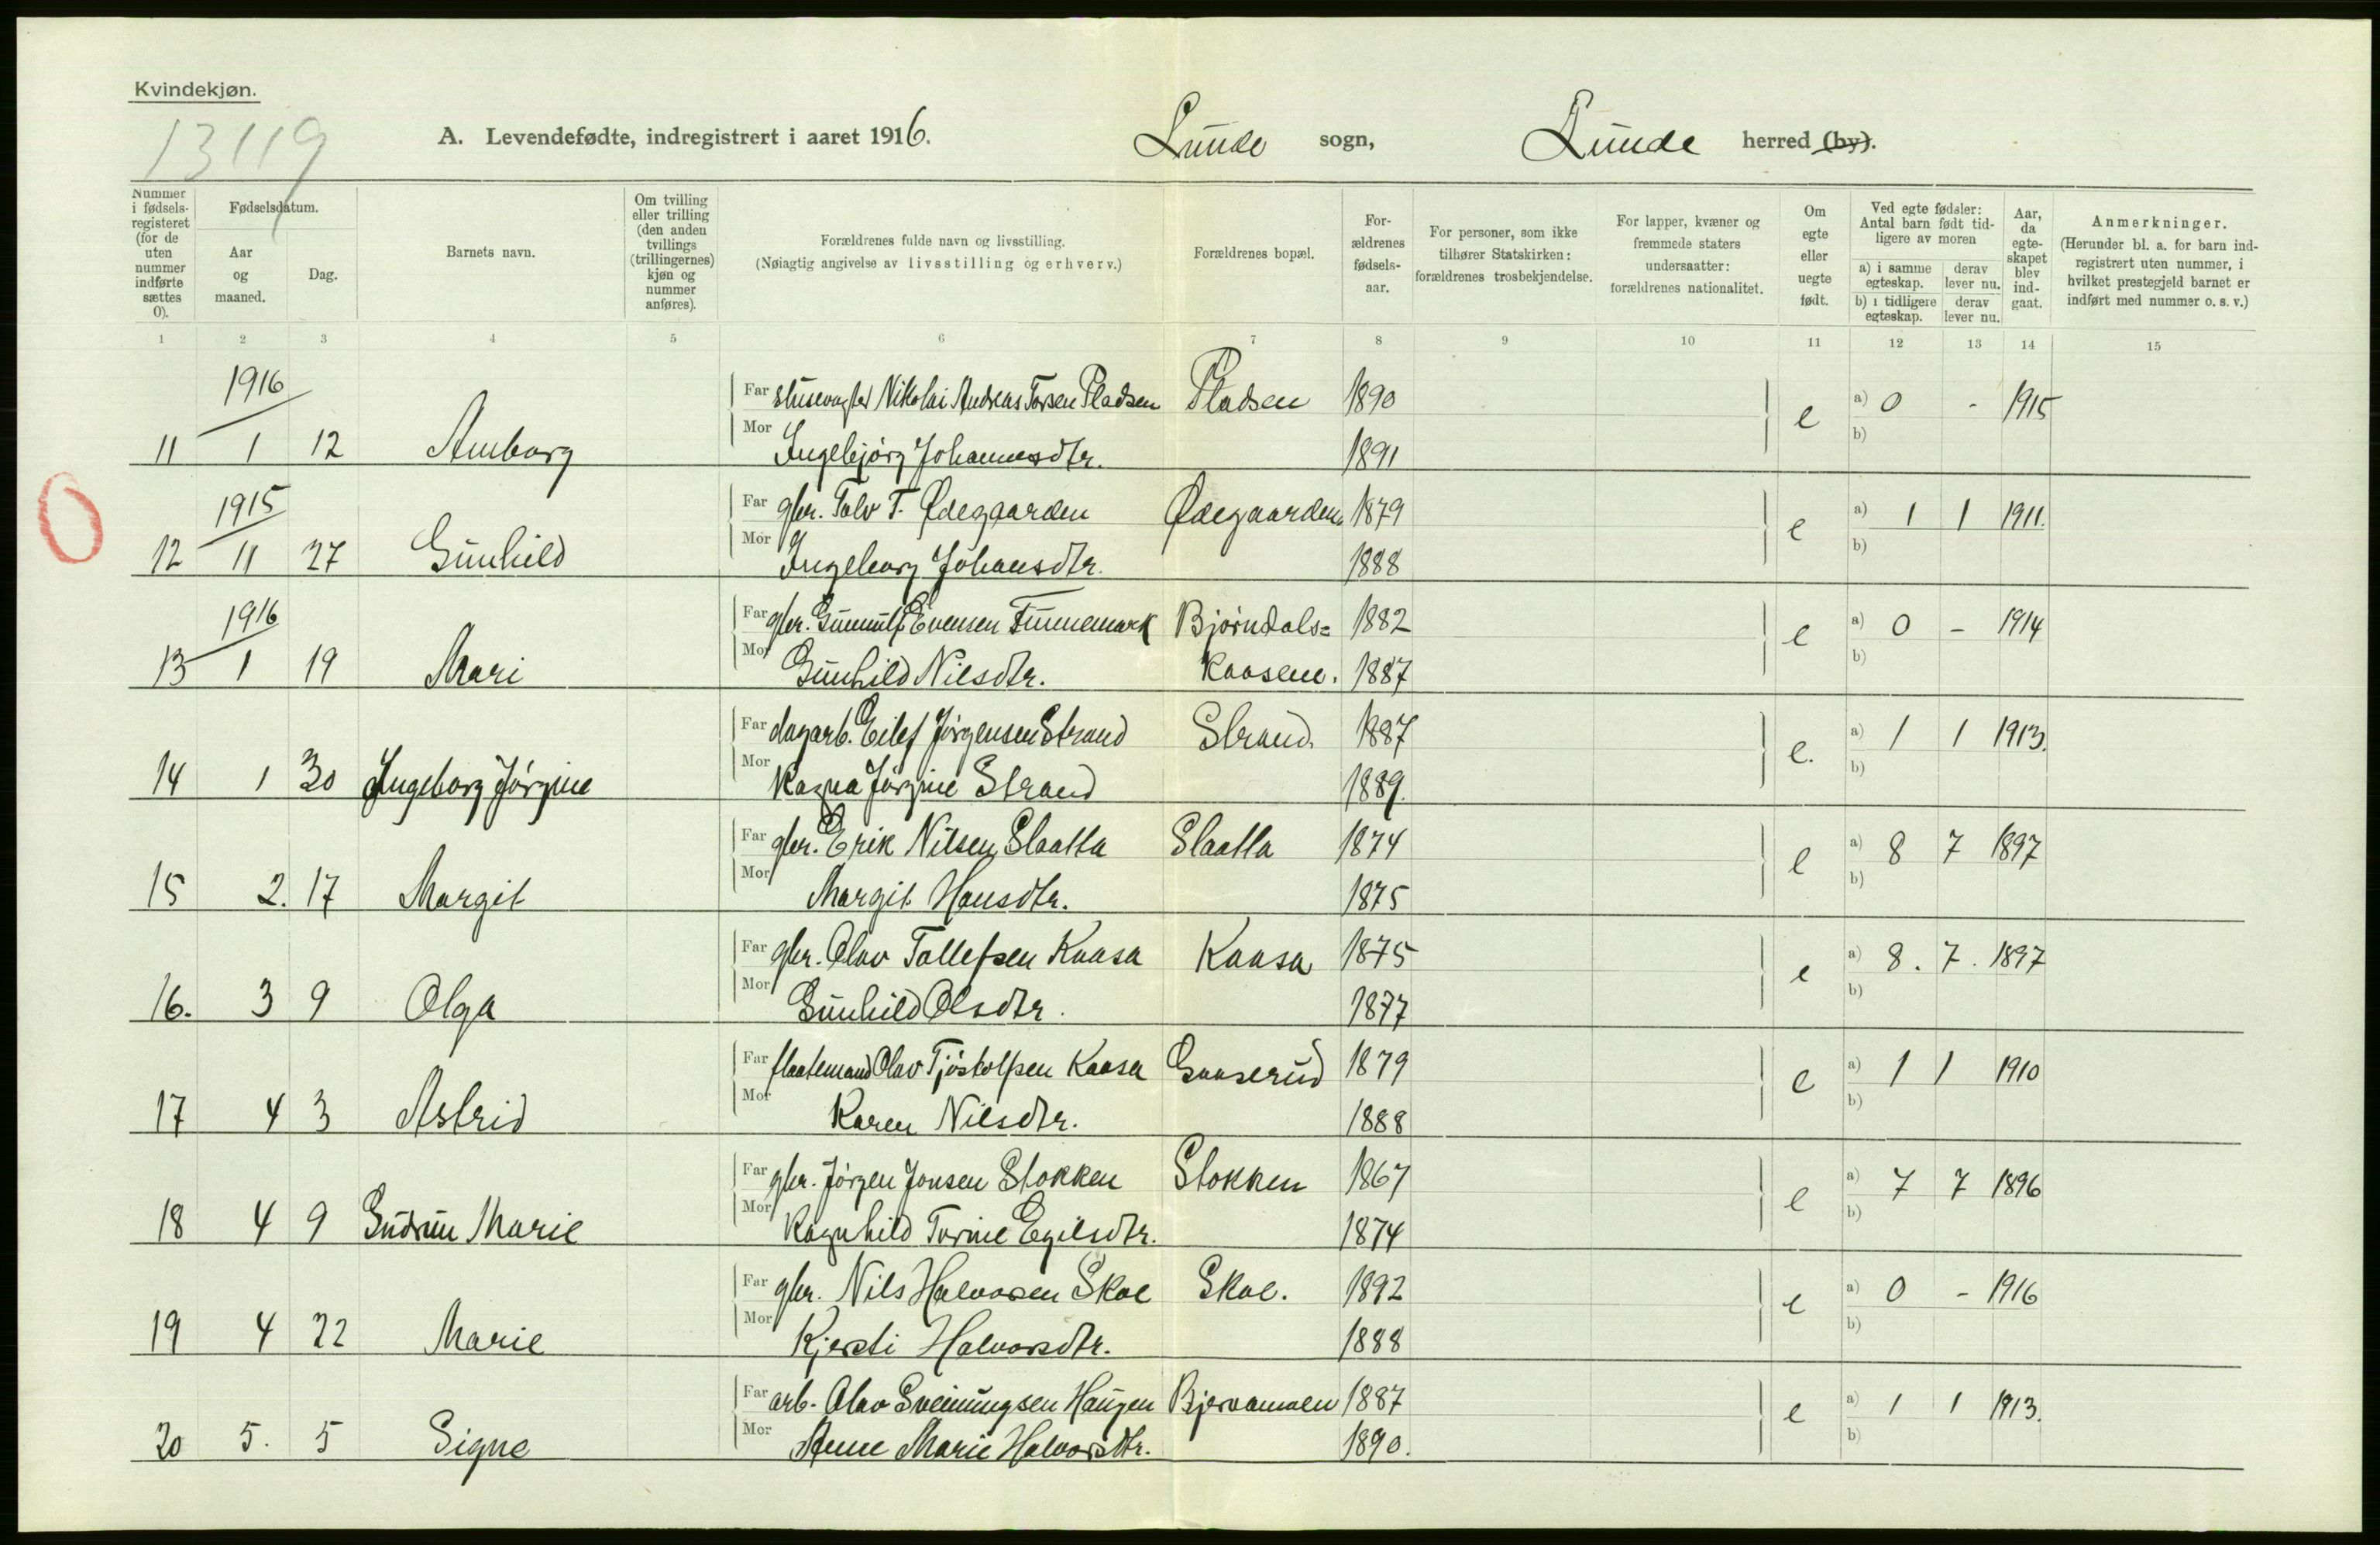 Kvindekjøn.
13119
A. Levendefødte, indregistrert i aaret 1916. Lunde sogn, Lunde herred (by).
Nummer i fødsels-registeret (for de uten nummer indførte sættes 0). Fødselsdatum. Aar og maaned. Dag. Barnets navn. Om tvilling eller trilling (den anden tvillings (trillingernes) kjøn og nummer anføres). Forældrenes fulde navn og livsstilling. (Nøiagtig angivelse av livsstilling og erhverv.) Forældrenes bopæl. For-ældrenes fødsels-aar. For personer, som ikke tilhører Statskirken: forældrenes trosbekjendelse. For lapper, kvæner og fremmede staters undersaatter: forældrenes nationalitet. Om egte eller uegte født. Ved egte fødsler: Antal barn født tid-ligere av moren a) i samme egteskap. derav lever nu. b) i tidligere egteskap. derav lever nu. Aar, da egte-skapet blev ind-gaat. Anmerkninger. (Herunder bl. a. for barn ind-registrert uten nummer, i hvilket prestegjeld barnet er indført med nummer o. s. v.)
1 2 3 4 5 6 7 8 9 10 11 12 13 14 15
1916 Far slusevogter Nikolai Andreas Torsen Pladsen Pladsen 1890 e a) 0 - 1915
11 1 12 Amborg Mor Ingebjørg Johannesdtr. 1891 b)
0
1915 Far gbr. Talv T. Ødegaarden Ødegaarden 1879 e a) 1 1 1911.
12 11 27 Gunhild Mor Ingeborg Johansdtr. 1888 b)
1916 Far gbr. Gunnulf Evensen Finnemark Bjørndals= 1882 e a) 0 - 1914
13 1 19 Mari Mor Gunhild Nilsdtr. kaasene. 1887 b)
Far dagarb. Eilef Jørgensen Strand Strand. 1887 e. a) 1 1 1913.
14 1 30 Ingeborg Jørgine Mor Ragna Jørgine Strand 1889. b)
Far gbr. Erik Nilsen Slaatta Slaatta 1874 e a) 8 7 1897
15 2. 17 Margit Mor Margit Hansdtr. 1875 b)
Far gbr. Olav Tollefsen Kaasa Kaasa 1875 e a) 8. 7. 1897
16. 3 9 Olga Mor Gunhild Olsdtr. 1877 b)
Far fløtemand Olav Tjøstolfsen Kaasa Gaaserud 1879 e a) 1 1 1910
17 4 3 Astrid Mor Karen Nilsdtr. 1888 b)
Far gbr. Jørgen Jonsen Stokken Stokken 1867 e a) 7 7 1896
18 4 9 Gudrun Marie Mor Ragnhild Torine Egilsdtr. 1874 b)
Far gbr. Nils Halvorsen Skoe Skoe. 1892 e a) 0 - 1916
19 4 22 Marie Mor Kjersti Halvorsdtr. 1888 b)
Far arb. Olav Sveinungsen Haugen Bjervamoen 1887 e a) 1 1 1913.
20 5. 5 Signe Mor Anne Marie Halvorsdtr. 1890. b)